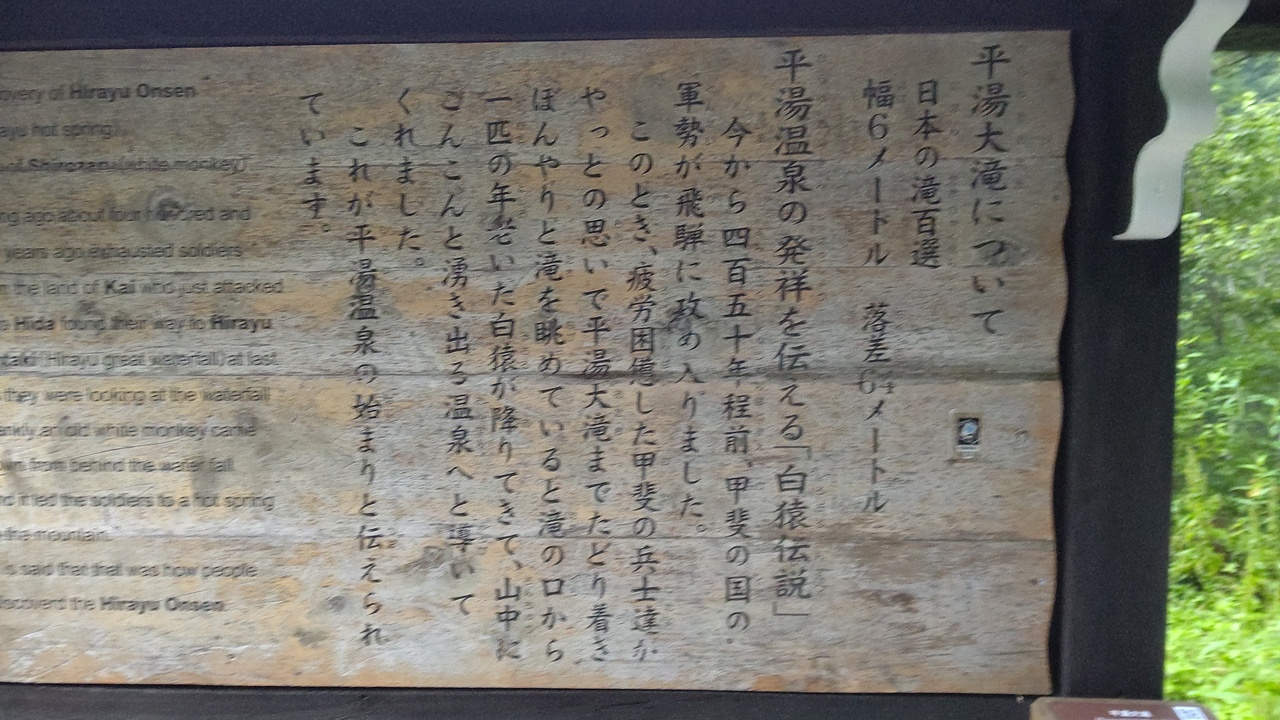 平湯大滝について
日本の滝百選
幅6メートル 落差64メートル
平湯温泉の発祥を伝える「白猿伝説」
今から四百五十年程前、甲斐の国の
軍勢が飛騨に攻め入りました。
このとき、疲労困憊した甲斐の兵士達が
やっとの思いで平湯大滝までたどり着き
ぼんやりと滝を眺めていると滝の口から
一匹の年老いた白猿が降りてきて、山中に
こんこんと湧き出る温泉へと導いて
くれました。
これが平湯温泉の始まりと伝えられ
ています。
overy of Hirayu Onsen
ayu hot spring).
Shirozaru (white monkey)
ng ago about four hundred and
years ago exhausted soldiers
m the land of Kai who just attacked
Hida found their way to Hirayu
otaki (Hirayu great waterfall) at last.
they were looking at the waterfall
ankly, an old white monkey came
own from behind the water fall
nd it led the soldiers to a hot spring
the mountain.
is said that that was how people
discoverd the Hirayu Onsen.